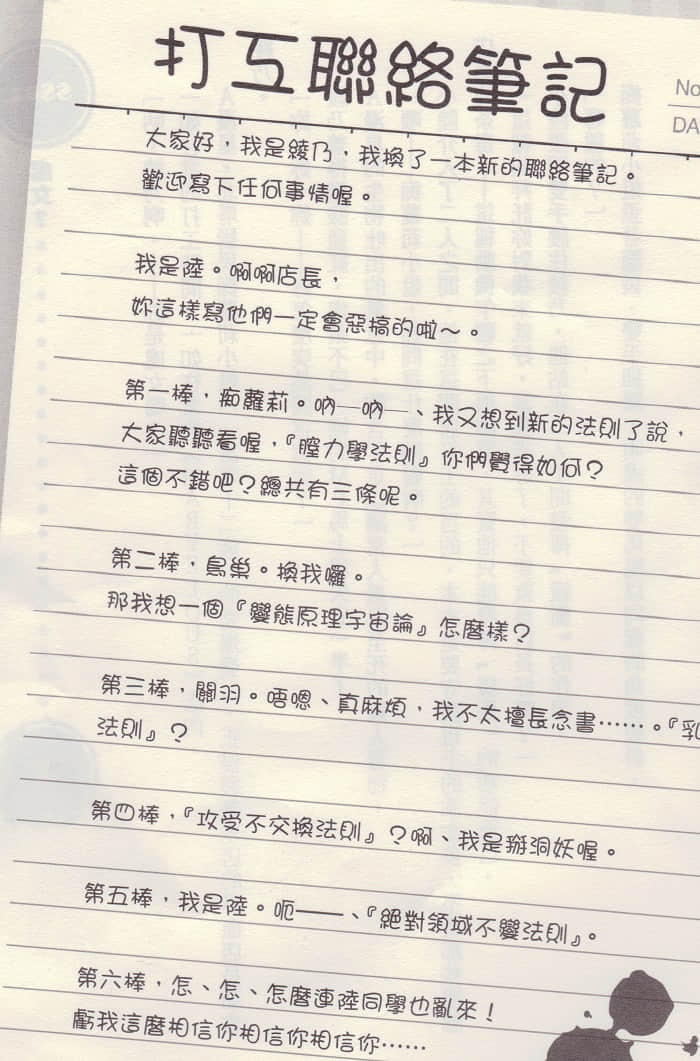 打工聯絡筆記
No
DA
大家好，我是綾乃，我換了一本新的聯絡筆記。
歡迎寫下任何事情喔。
我是陸。啊啊店長，
妳這樣寫他們一定會惡搞的啦～。
第一棒，痴蘿莉。吶─吶─、我又想到新的法則了說，
大家聽聽看喔，『膣力學法則』你們覺得如何？
這個不錯吧？總共有三條呢。
第二棒，鳥巢。換我囉。
那我想一個『變態原理宇宙論』怎麼樣？
第三棒，關羽。唔嗯、真麻煩，我不太擅長念書……。『乳
法則』？
第四棒，『攻受不交換法則』？啊、我是掰洞妖喔。
第五棒，我是陸。呃——、『絕對領域不變法則』。
第六棒，怎、怎、怎麼連陸同學也亂來！
虧我這麼相信你相信你相信你……